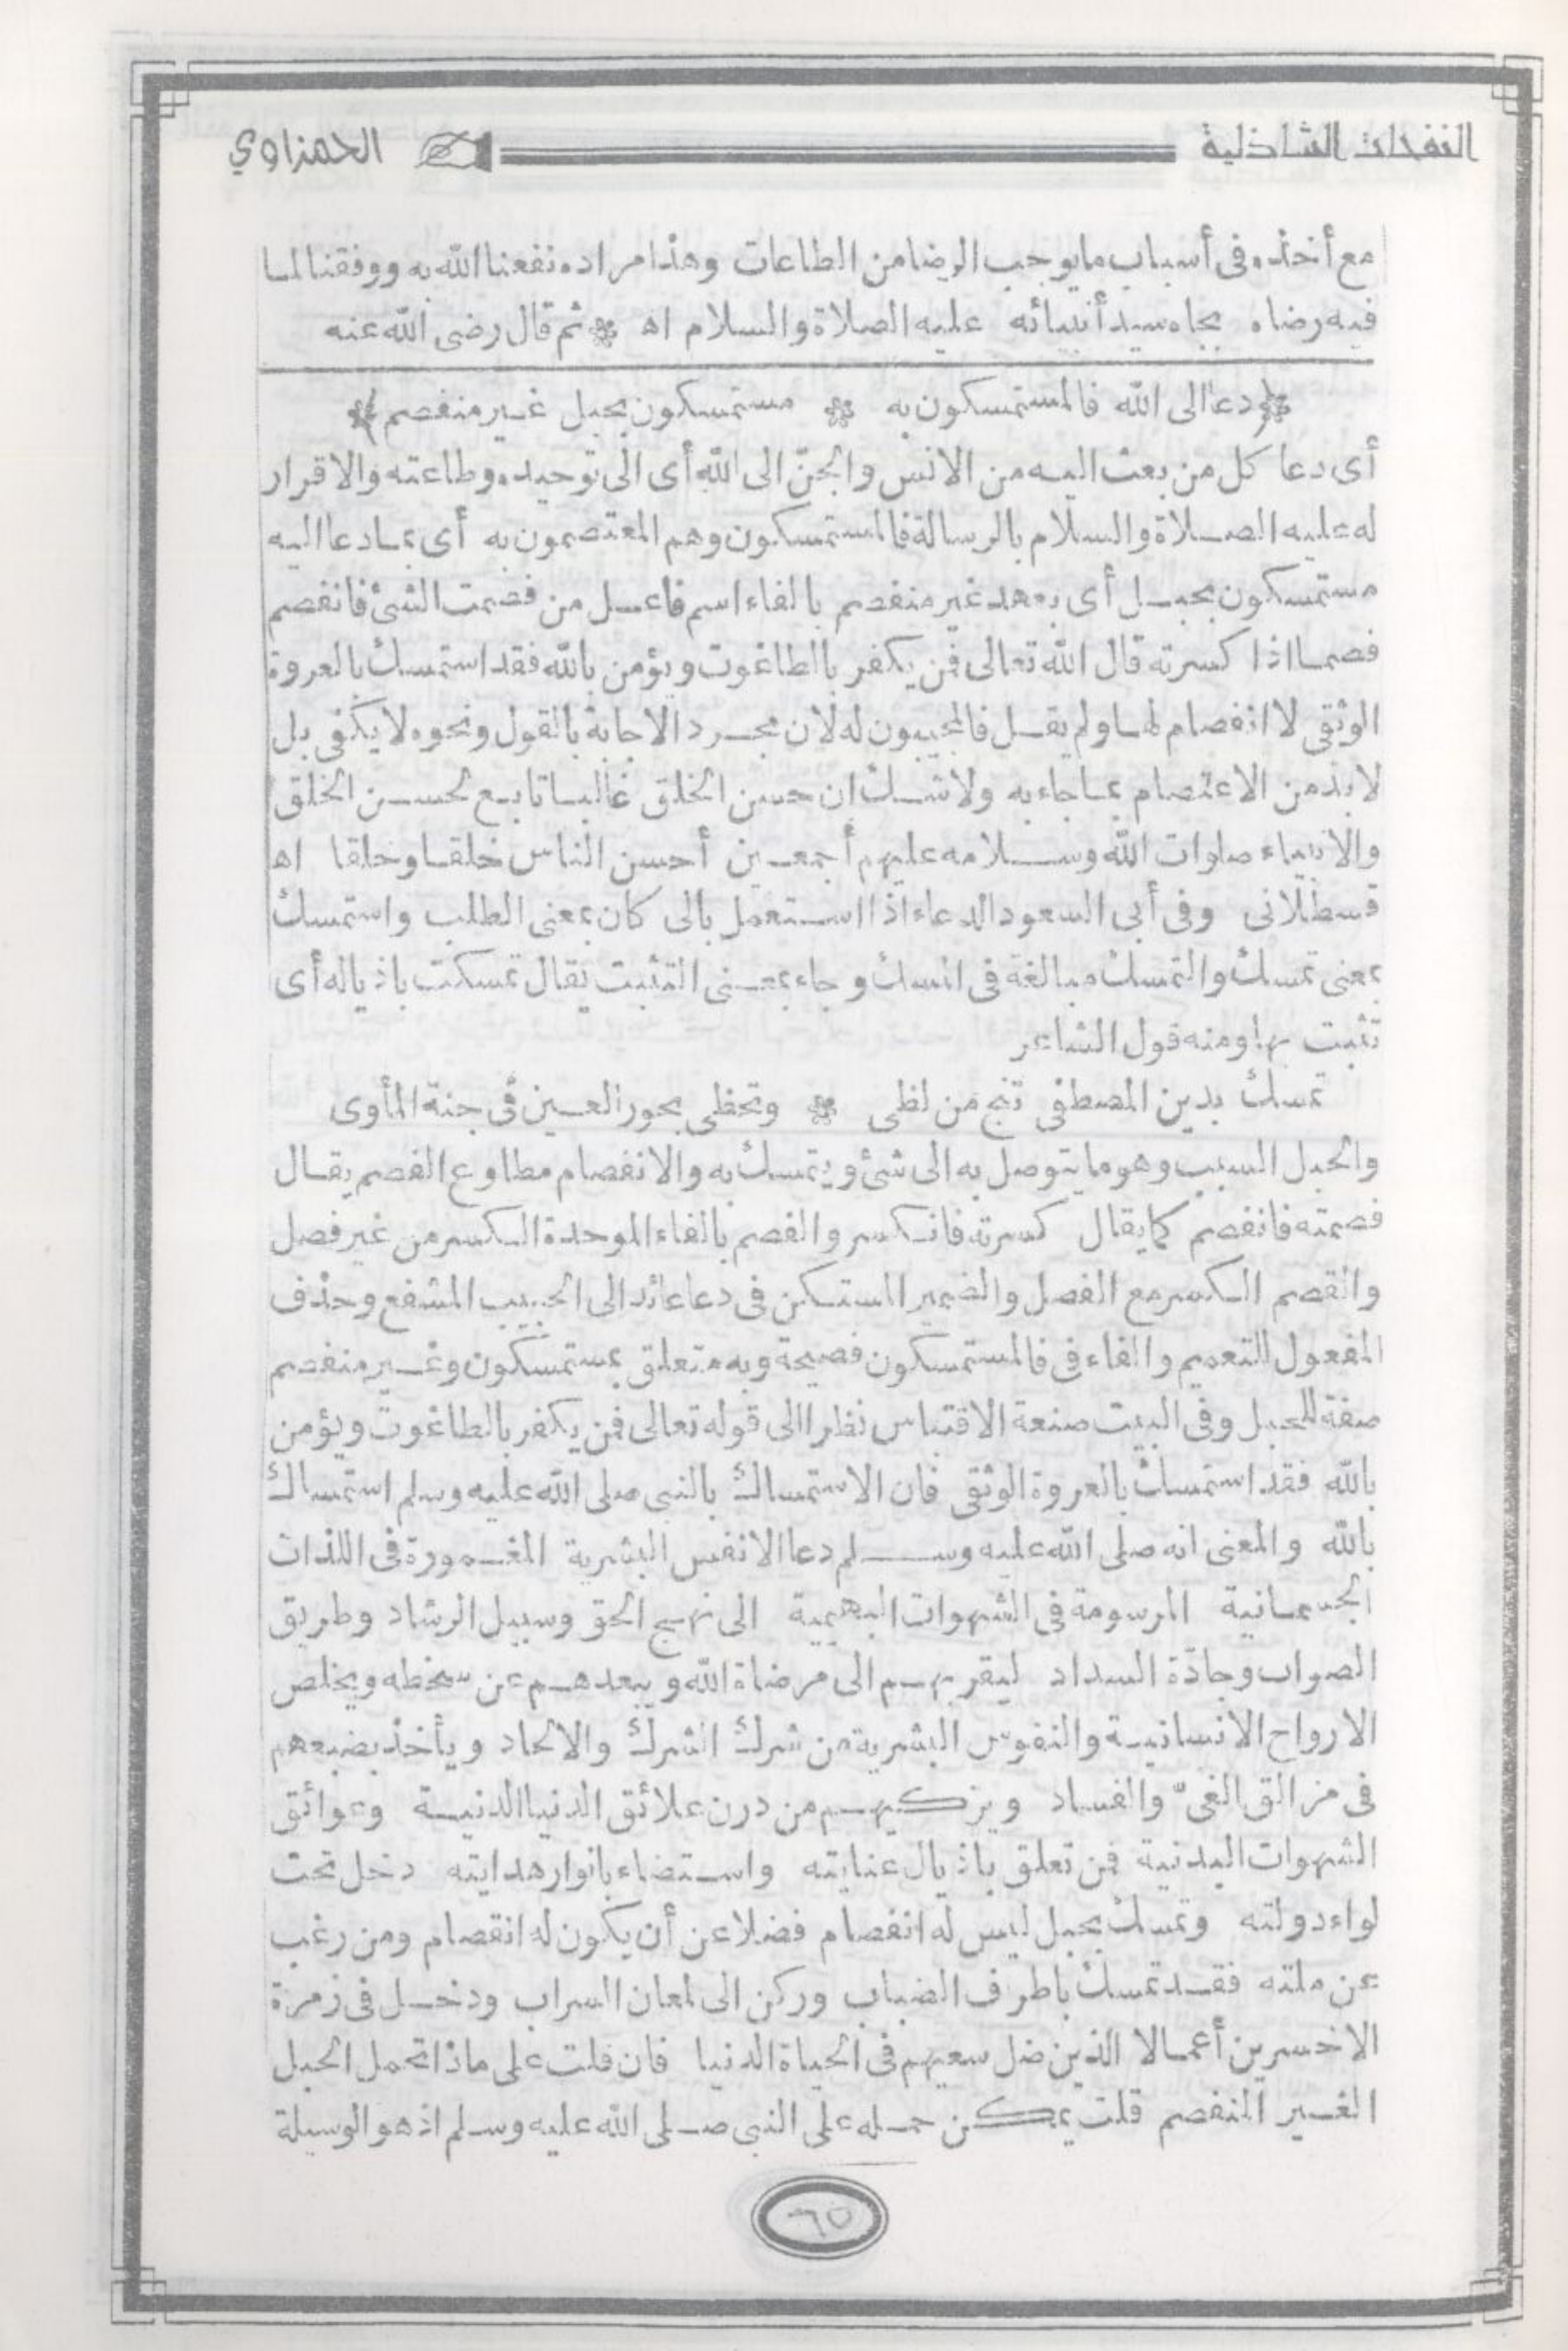 النفحات الشاذلية الحمزاوي
مع أخذه فى أسباب ما يوجب الرضا من الطاعات وهذا مراده نفعنا الله به ووفقنا لما
فيه رضاه بجاه سيد أنبيائه عليه الصلاة والسلام اه ثم قال رضى الله عنه
دعا الى الله فالمستمسكون به مستمسكون بحبل غير منفصم
أى دعا كل من بعث اليه من الانس والجنّ الى الله أى الى توحيده وطاعته والاقرار
له عليه الصلاة والسلام بالرسالة فالمستمسكون وهم المعتصمون به أى بما دعا اليه
مستمسكون بحبل أى بعهد غير منفصم بالفاء اسم فاعل من فصمت الشئ فانفصم
فصما اذا كسرته قال الله تعالى فمن يكفر بالطاغوت ويؤمن بالله فقد استمسك بالعروة
الوثقى لا انفصام لها ولم يقل فالمجيبون له لان مجرد الاجابة بالقول ونحوه لا يكفى بل
لا بدّ من الاعتصام بما جاء به ولا شك ان حسن الخلق غالبا تابع لحسن الخلق
والانبياء صلوات الله وسلامه عليهم أجمعين أحسن الناس خلقا وخلقا اه
قسطلانى وفى أبى السعود الدعاء اذا استعمل بالى كان بمعنى الطلب واستمسك
بمعنى تمسك والتمسك مبالغة فى امسك وجاء بمعنى التثبت يقال تمسكت باذياله أى
تثبت بها ومنه قول الشاعر
تمسك بدين المصطفى تنج من لظى وتحظى بحور العين فى جنة المأوى
والحبل السبب وهو ما يتوصل به الى شئ ويتمسك به والانفصام مطاوع الفصم يقال
فصمته فانفصم كما يقال كسرته فانكسر والفصم بالفاء الموحدة الكسر من غير فصل
والقصم الكسر مع الفصل والضمير المستكن فى دعا عائد الى الحبيب المشفع وحذف
المفعول للتعميم والفاء فى فالمستمسكون فصيحة وبه متعلق بمستمسكون وغير منفصم
صفة للحبل وفى البيت صنعة الاقتباس نظرا الى قوله تعالى فمن يكفر بالطاغوت ويؤمن
بالله فقد استمسك بالعروة الوثقى فان الاستمساك بالنبى صلى الله عليه وسلم استمساك
بالله والمعنى انه صلى الله عليه وسلم دعا الانفس البشرية المغمورة فى اللذات
الجسمانية المرسومة فى الشهوات البهيمية الى نهج الحق وسبيل الرشاد وطريق
الصواب وجادّة السداد ليقربهم الى مرضاة الله ويبعدهم عن سخطه ويخلص
الارواح الانسانية والنفوس البشرية من شرك الشرك والالحاد ويأخذ بضبعهم
فى مزالق الغىّ والفساد ويزكيهم من درن علائق الدنيا الدنية وعوائق
الشهوات البدنية فمن تعلق باذيال عنايته واستضاء بانوار هدايته دخل تحت
لواء دولته وتمسك بحبل ليس له انفصام فضلا عن أن يكون له انقصام ومن رغب
عن ملته فقد تمسك باطراف الضباب وركن الى لمعان السراب ودخل فى زمرة
الاخسرين أعمالا الذين ضل سعيهم فى الحياة الدنيا فان قلت على ماذا تحمل الحبل
الغير المنفصم قلت يمكن حمله على النبى صلى الله عليه وسلم اذ هو الوسيلة
٦٥